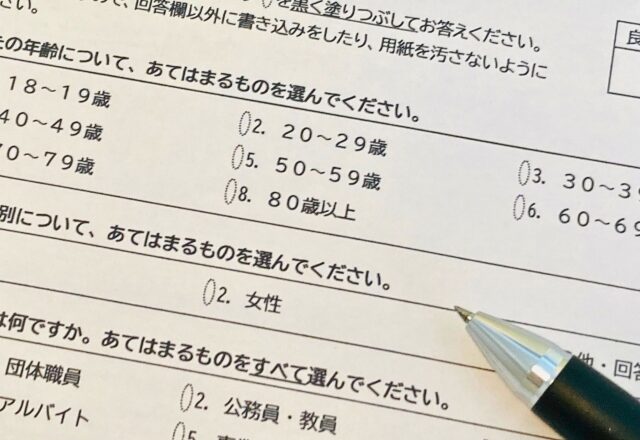 を黒く塗りつぶしてお答えください。
回答欄以外に書き込みをしたり、用紙を汚さないように
さい。
良
の年齢について、あてはまるものを選んでください。
18～19歳
2. 20～29歳
3. 30～3
40～49歳
5. 50～59歳
6. 60～69
70～79歳
8. 80歳以上
別について、あてはまるものを選んでください。
2. 女性
他・回答
は何ですか。あてはまるものをすべて選んでください。
団体職員
2. 公務員・教員
アルバイト
5.